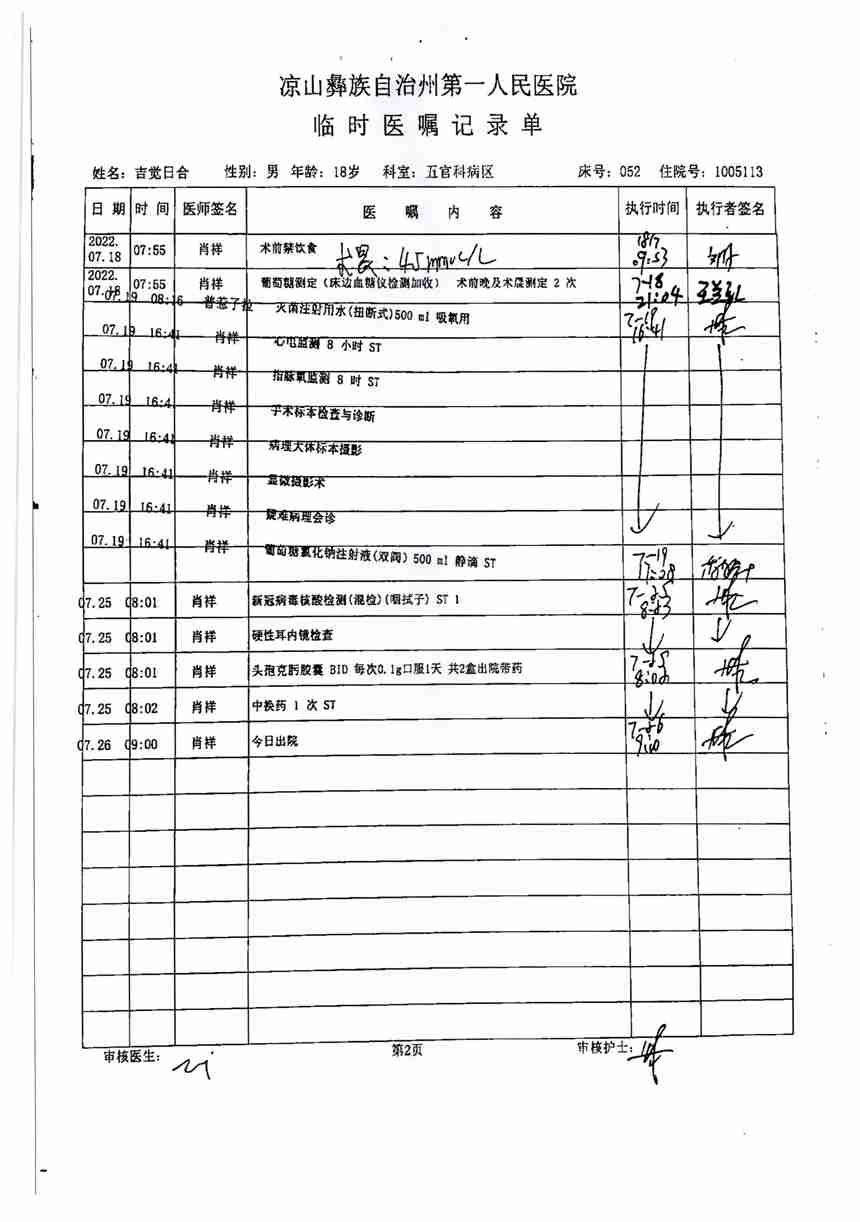 凉山彝族自治州第一人民医院
临时医嘱记录单
姓名: 吉觉日合 性别: 男 年龄: 18岁 科室: 五官科病区 床号: 052 住院号: 1005113
日期 时间 医师签名 医嘱内容 执行时间 执行者签名
2022.07.18 07:55 肖祥 术前禁饮食 术晨: 4.5mmol/L 18/7 09:53
2022.07.18 07:55 肖祥 葡萄糖测定(床边血糖仪检测加收) 术前晚及术晨测定 2 次 7-18 21:04
07.19 08:16 普惹子拉 灭菌注射用水(扭断式)500 ml 吸氧用 7-19 16:41
07.19 16:41 肖祥 心电监测 8 小时 ST
07.19 16:41 肖祥 指脉氧监测 8 时 ST
07.19 16:4 肖祥 手术标本检查与诊断
07.19 16:41 肖祥 病理大体标本摄影
07.19 16:41 肖祥 显微摄影术
07.19 16:41 肖祥 疑难病理会诊
07.19 16:41 肖祥 葡萄糖氯化钠注射液(双阀) 500 ml 静滴 ST 7-19 17:28
07.25 08:01 肖祥 新冠病毒核酸检测(混检)(咽拭子) ST 1 7-25 8:03
07.25 08:01 肖祥 硬性耳内镜检查
07.25 08:01 肖祥 头孢克肟胶囊 BID 每次0.1g口服1天 共2盒出院带药 7-25
07.25 08:02 肖祥 中换药 1 次 ST
07.26 09:00 肖祥 今日出院 7-26 9:10
审核医生: 第2页 审核护士: